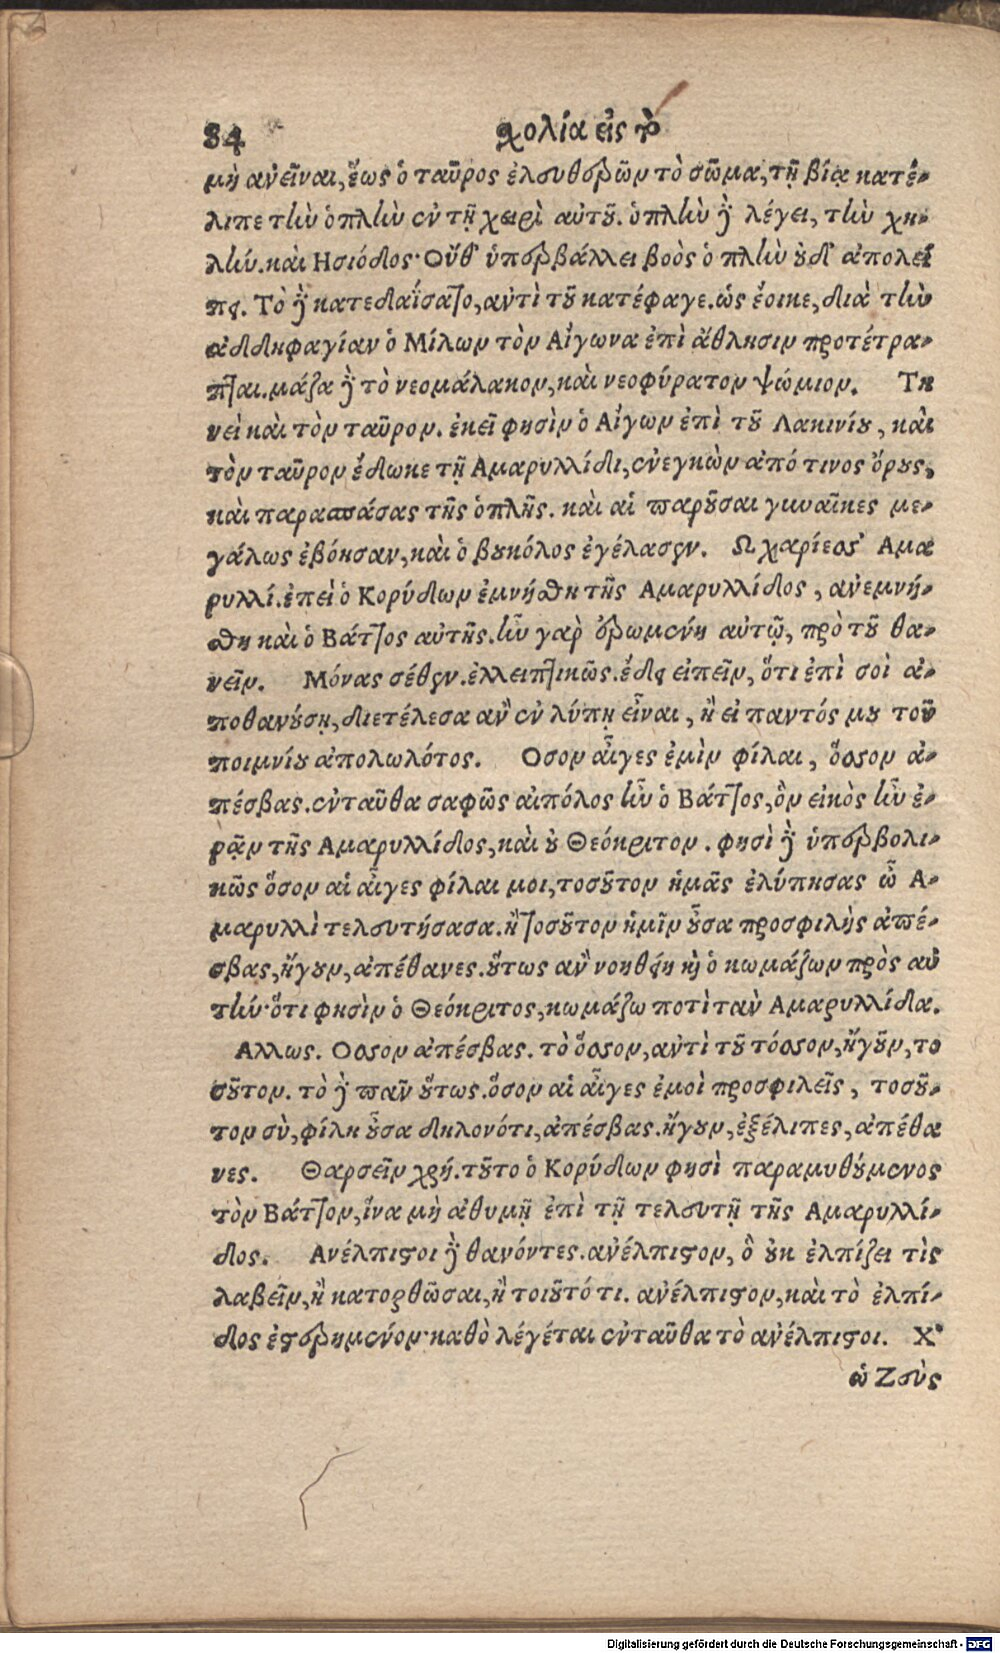 84 χολία εἰς τὸ
μὴ ἀνεῖναι, ἕως ὁ ταῦρος ἐλευθερῶν τὸ σῶμα, τῇ βίᾳ κατέ-
λιπε τὴν ὁπλὴν ἐν τῇ χειρὶ αὐτοῦ. ὁπλὴν γὰρ λέγει, τὴν χη-
λήν. καὶ Ησιόδος· Οὔθ' ὑπερβάλλει βοὸς ὁπλὴν οὐδ' ἀπολεί
πει. Τὸ γὰρ κατεδαΐσατο, ἀντὶ τοῦ κατέφαγε. ὡς ἔοικε, διὰ τὴν
ἀδδηφαγίαν ὁ Μίλων τὸν Αἴγωνα ἐπὶ ἄθλησιν προτέτρα-
πται. μάζα γὰρ τὸ νεομάλακον, καὶ νεοφύρατον ψώμιον. Τη
νεὶ καὶ τὸν ταῦρον. ἐκεῖ φησὶν ὁ Αἴγων ἐπὶ τοῦ Λακινίου, καὶ
τὸν ταῦρον ἔδωκε τῇ Αμαρυλλίδι, ἐνεγκὼν ἀπό τινος ὄρους,
καὶ παρασπάσας τῆς ὁπλῆς. καὶ αἱ παροῦσαι γυναῖκες με-
γάλως ἐβόησαν, καὶ ὁ βουκόλος ἐγέλασεν. Ω χαρίεσσ' Αμα
ρυλλί. ἐπεὶ ὁ Κορύδων ἐμνήσθη τῆς Αμαρυλλίδος, ἀνεμνή-
σθη καὶ ὁ Βάττος αὐτῆς. ἦν γαρ ἐρωμένη αὐτῷ, πρὸ τοῦ θα-
νεῖν. Μόνας σέθεν. ἐλλειπτικῶς. ἔδει εἰπεῖν, ὅτι ἐπὶ σοὶ ἀ-
ποθανούσῃ, διετέλεσα ἂν ἐν λύπῃ εἶναι, ἢ εἰ παντός μου τοῦ
ποιμνίου ἀπολωλότος. Οσον αἶγες ἐμὶν φίλαι, ὅσσον ἀ-
πέσβας. ἐνταῦθα σαφῶς αἰπόλος ἦν ὁ Βάττος, ὃν εἰκὸς ἦν ἐ-
ρᾷν τῆς Αμαρυλλίδος, καὶ οὐ Θεόκριτον. φησὶ γὰρ ὑπερβολι-
κῶς ὅσον αἱ αἶγες φίλαι μοι, τοσοῦτον ἡμᾶς ἐλύπησας ὦ Α-
μαρυλλὶ τελευτήσασα. ἢ τοσοῦτον ἡμῖν οὖσα προσφιλὴς ἀπέ-
σβας, ἤγουν, ἀπέθανες. οὕτως ἂν νοηθείη καὶ ὁ κωμάζων πρὸς αὐ
τήν· ὅτι φησὶν ὁ Θεόκριτος, κωμάζω ποτὶ τὰν Αμαρυλλίδα.
Αλλως. Οσσον ἀπέσβας. τὸ ὅσσον, ἀντὶ τοῦ τόσσον, ἤγοῦν, το
σοῦτον. τὸ γὰρ πᾶν οὕτως. ὅσον αἱ αἶγες ἐμοὶ προσφιλεῖς, τοσοῦ-
τον σὺ, φίλη οὖσα δηλονότι, ἀπέσβας. ἤγουν, ἐξέλιπες, ἀπέθα
νες. Θαρσεῖν χρή. τοῦτο ὁ Κορύδων φησὶ παραμυθούμενος
τὸν Βάττον, ἵνα μὴ ἀθυμῇ ἐπὶ τῇ τελευτῇ τῆς Αμαρυλλί-
δος. Ανέλπιστοι γὰρ θανόντες. ἀνέλπιστον, ὃ οὐκ ἐλπίζει τὶς
λαβεῖν, ἢ κατορθῶσαι, ἢ τοιοῦτό τι. ἀνέλπιστον, καὶ τὸ ἐλπί-
δος ἐστερημένον· καθὸ λέγεται ἐνταῦθα τὸ ἀνέλπιστοι. Χ'
ὡ Ζεὺς
Digitalisierung gefördert durch die Deutsche Forschungsgemeinschaft - DFG